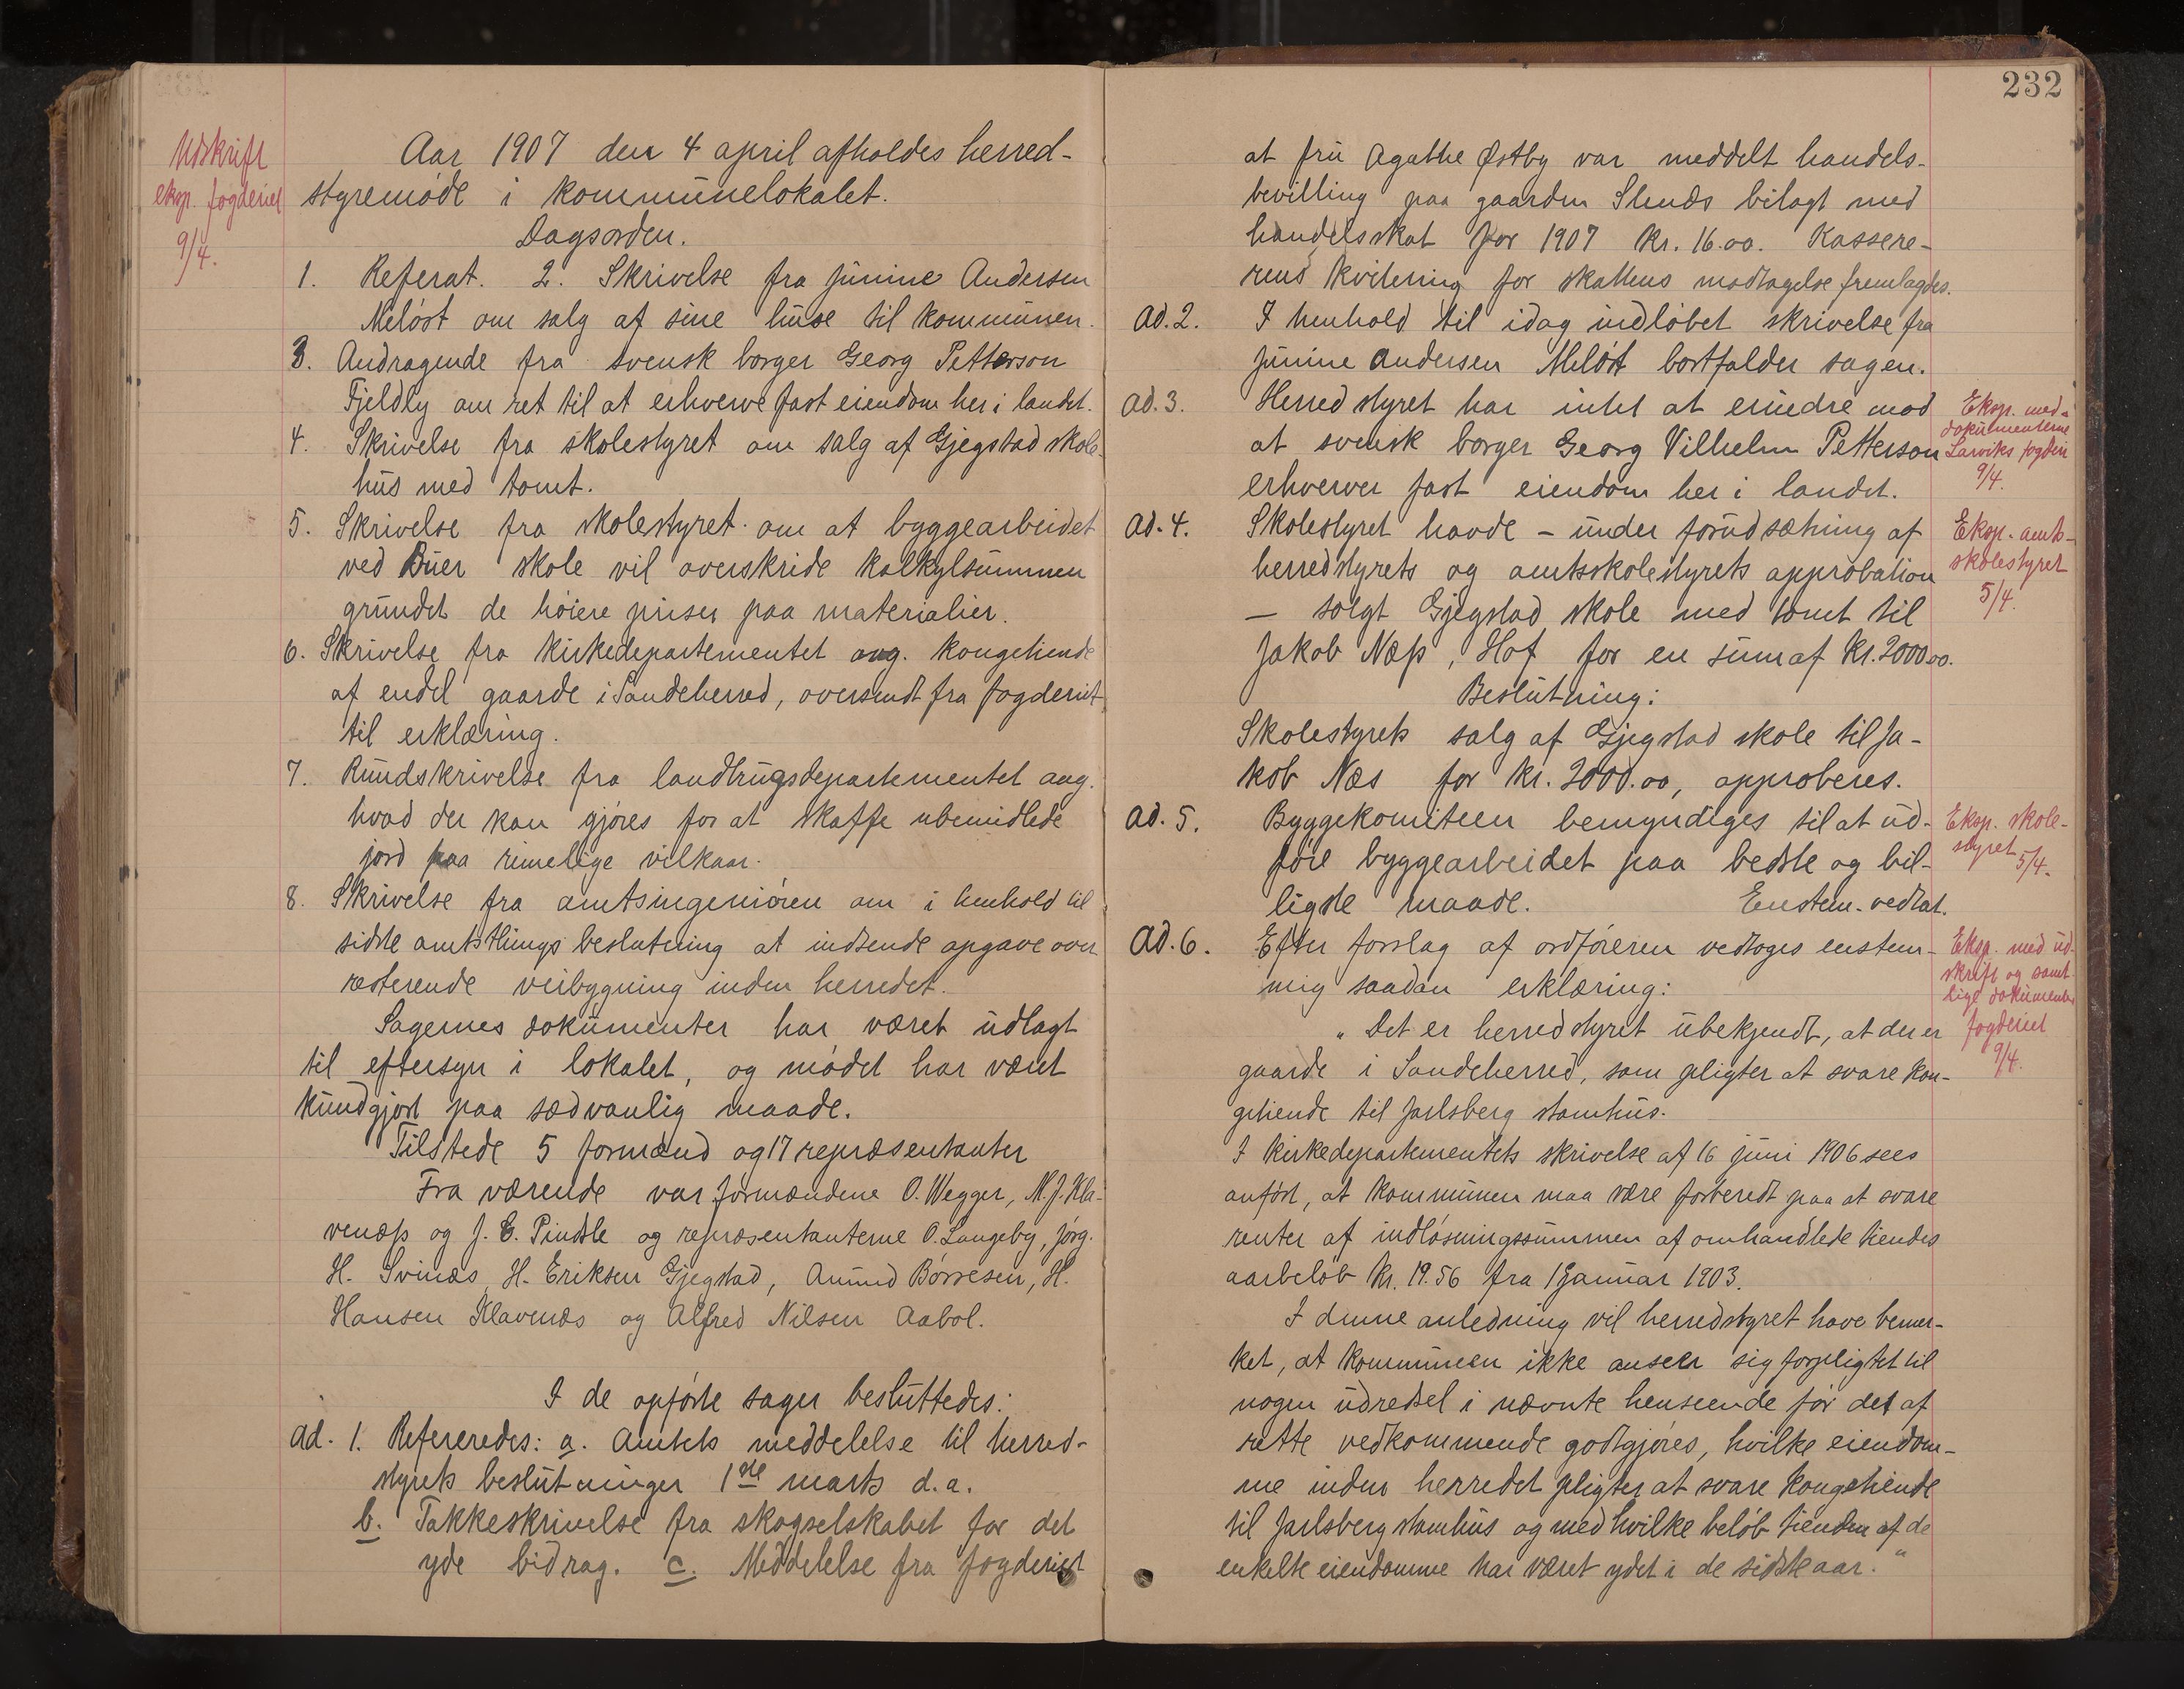 Udskrift
eksp. fogderiet
9/4.
Aar 1907 den 4 april afholdes herred-
styremøde i kommunelokalet.
Dagsorden.
1. Referat. 2. Skrivelse fra Junine Andersen
Meløst om salg af sine huse til kommunen.
3. Andragende fra svensk borger Georg Petterson
Fjeldly om ret til at erhverve fast eiendom her i landet.
4. Skrivelse fra skolestyret om salg af Gjegstad skole-
hus med tomt.
5. Skrivelse fra skolestyret om at byggearbeidet
ved Buer skole vil overskride kalkylsummen
grundet de høiere priser paa materialier.
6. Skrivelse fra kirkedepartementet ang. kongetiende
af endel gaarde i Sandeherred, oversendt fra fogderiet
til erklæring.
7. Rundskrivelse fra landbrugsdepartementet ang.
hvad der kan gjøres for at skaffe ubemidlede
jord paa rimelige vilkaar.
8. Skrivelse fra amtsingeniøren om i henhold til
sidste amtsthings beslutning at indsende opgave over
resterende veibygning inden herredet.
Sagernes dokumenter har været udlagt
til eftersyn i lokalet, og mødet har været
kundgjort paa sædvanlig maade.
Tilstede 5 formænd og 17 repræsentanter
Fra værende var formændene O. Wegger, M. J. Kla-
venæss og J. C. Pindsle og repræsentanterne O. Langeby, Jørg.
H. Svinæs, H. Eriksen Gjegstad, Amund Børresen, H.
Hansen Klavenæs og Alfred Nilsen Aabol.
I de opførte sager besluttedes:
ad. 1. Refereredes: a. Amtets meddelelse til herred-
styrets beslutninger 1ste marts d.a.
b. Takkeskrivelse fra skogselskabet for det
yde bidrag. c. Meddelelse fra fogderiet
232
at fru Agathe Østby var meddelt handels-
bevilling paa gaarden Skuds bilagt med
handelsskat for 1907 kr. 16.00. Kassere-
rens kvitering for skattens modtagelse fremlagdes.
ad. 2. I henhold til idag indløbet skrivelse fra
Junine Andersen Meløst bortfalder sagen.
ad. 3. Herredstyret har intet at erindre mod
at svensk borger Georg Vilhelm Petterson
erhverver fast eiendom her i landet.
Eksp. med
dokumenterne
Larviks fogderi
9/4.
ad. 4. Skolestyret havde – under forudsætning af
herredstyrets og amtsskolestyrets approbation
– solgt Gjegstad skole med tomt til
Jakob Næss, Hof for en sum af kr. 2000.00.
Eksp. amts-
skolestyret
5/4.
Beslutning:
Skolestyrets salg af Gjegstad skole til Ja-
kob Næs for kr. 2000.00, approberes.
ad. 5. Byggekomiteen bemyndiges til at ud-
føre byggearbeidet paa bedste og bil-
ligste maade. Enstem. vedtat.
Eksp. skole-
styret 5/4.
ad. 6. Efter forslag af ordføreren vedtoges enstem-
mig saadan erklæring:
Eksp. med ud-
skrift og samt-
lige dokumenter
fogderiet
9/4.
"Det er herredstyret ubekjendt, at der er
gaarde i Sandeherred, som pligter at svare kon-
getiende til Jarlsberg stamhus.
I kirkedepartementets skrivelse af 16 juni 1906 sees
anført, at kommunen maa være forberedt paa at svare
renter af indløsningssummen af omhandlede tiendes
aarbeløb kr. 19.56 fra 1 januar 1903.
I denne anledning vil herredstyret have bemer-
ket, at kommunen ikke anseer sig forpligtet til
nogen udredsel i nævnte henseende før det af
rette vedkommende godtgjøres, hvilke eiendom-
me inden herredet pligter at svare kongetiende
til Jarlsberg stamhus og med hvilke beløb tienden af de
enkelte eiendomme har været ydet i de sidste aar."